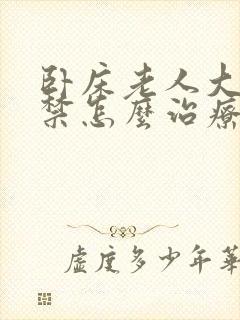 卧床老人大
禁怎麼治療
虛度多少年華